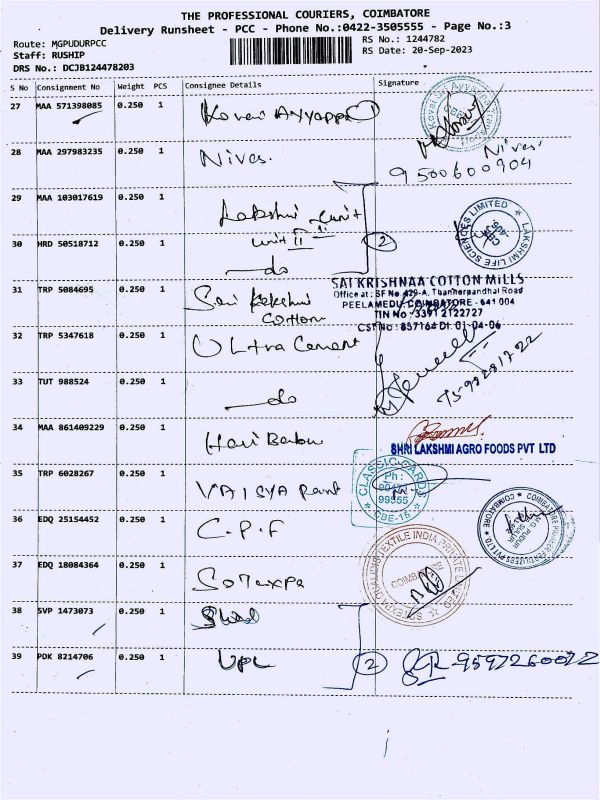 THE PROFESSIONAL COURIERS, COIMBATORE
Delivery Runsheet - PCC - Phone No.:0422-3505555 - Page No.:3
Route: MGPUDURPCC
RS No.: 1244782
Staff: RUSHIP
RS Date: 20-Sep-2023
DRS No.: DCJB124478203
S No Consignment No Weight PCS Consignee Details Signature
27 MAA 571398085 0.250 1 Kovai Ayyappa
28 MAA 297983235 0.250 1 Nives. Nives.
9500600904
29 MAA 103017619 0.250 1 Lakshmi unit
unit II
LAKSHMI LIFE SCIENCES LIMITED
30 HRD 50518712 0.250 1 do 2
31 TRP 5084695 0.250 1 Sai Lakshmi
Cotton
SAI KRISHNAA COTTON MILLS
Office at : SF No.429-A, Thaneerpandhal Road
PEELAMEDU, COIMBATORE - 641 004
TIN No : 3391 2122727
CST No : 857164 Dt. 01-04-06
32 TRP 5347618 0.250 1 Ultra Cement
33 TUT 988524 0.250 1 do
34 MAA 861409229 0.250 1 Hari Babu
SHRI LAKSHMI AGRO FOODS PVT LTD
35 TRP 6028267 0.250 1 VAISYA Bank
CLASSIC CARDS
Ph :
99555
CBE-15
36 EDQ 25154452 0.250 1 C.P.F
COIMBATORE
37 EDQ 18084364 0.250 1 Sotexpa
SOTEXPA QUALIDIS TEXTILE INDIA PRIVATE LIMITED
COIMBATORE
38 SVP 1473073 0.250 1
39 PDK 8214706 0.250 1 UPL 2